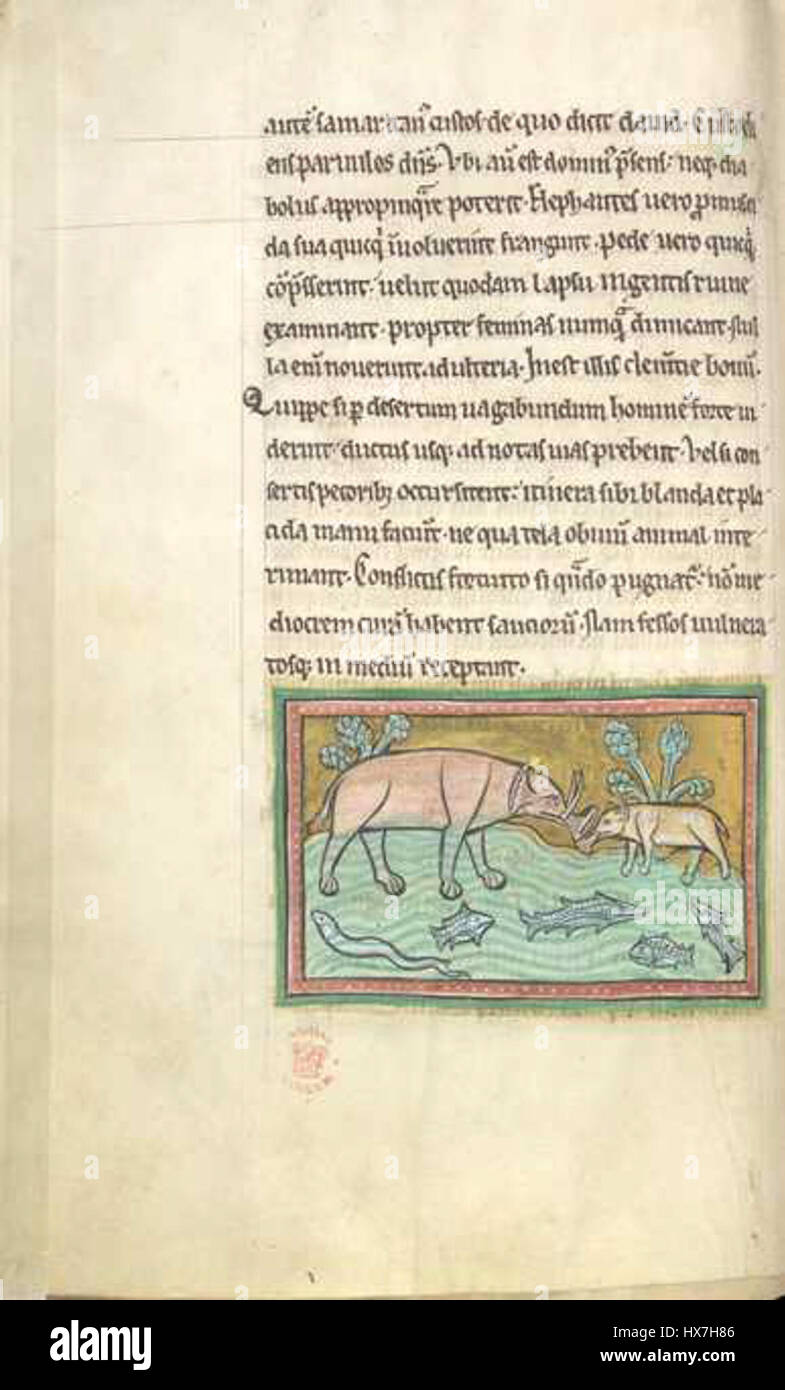 autē samaritanꝰ custos de quo dicit dauid. Custodi
ens paruulos dn̄s. Vbi aū est dominꝰ p̄sens: neq; dia
bolus appropinq̄re poterit. Elephantes uero promusci
da sua quicq̄ īuoluerint frangunt. pede uero quicq̄
cōp̄sserint. uelut quodam lapsu ingentis ruine
examinant. propter feminas numq̄ dimicant. Nul
la enī nouerunt adulteria. Inest illis clemētie bonū.
Quippe si p̲ desertum uagabundum hominē forte ui
derint. ductus usq; ad notas uias prebent. Vel si con
sertis pecorib; occursitent: itinera sibi blanda et pla
cida manu faciūt. ne qua tela obuiū animal inte
rimant. Conflictu fortuito si qn̄do pugnat᷑: nō me
diocrem curā habent sauciorū. Nam fessos uulnera
tosq; in mediū receptant.
alamy
Image ID: HX7H86
www.alamy.com